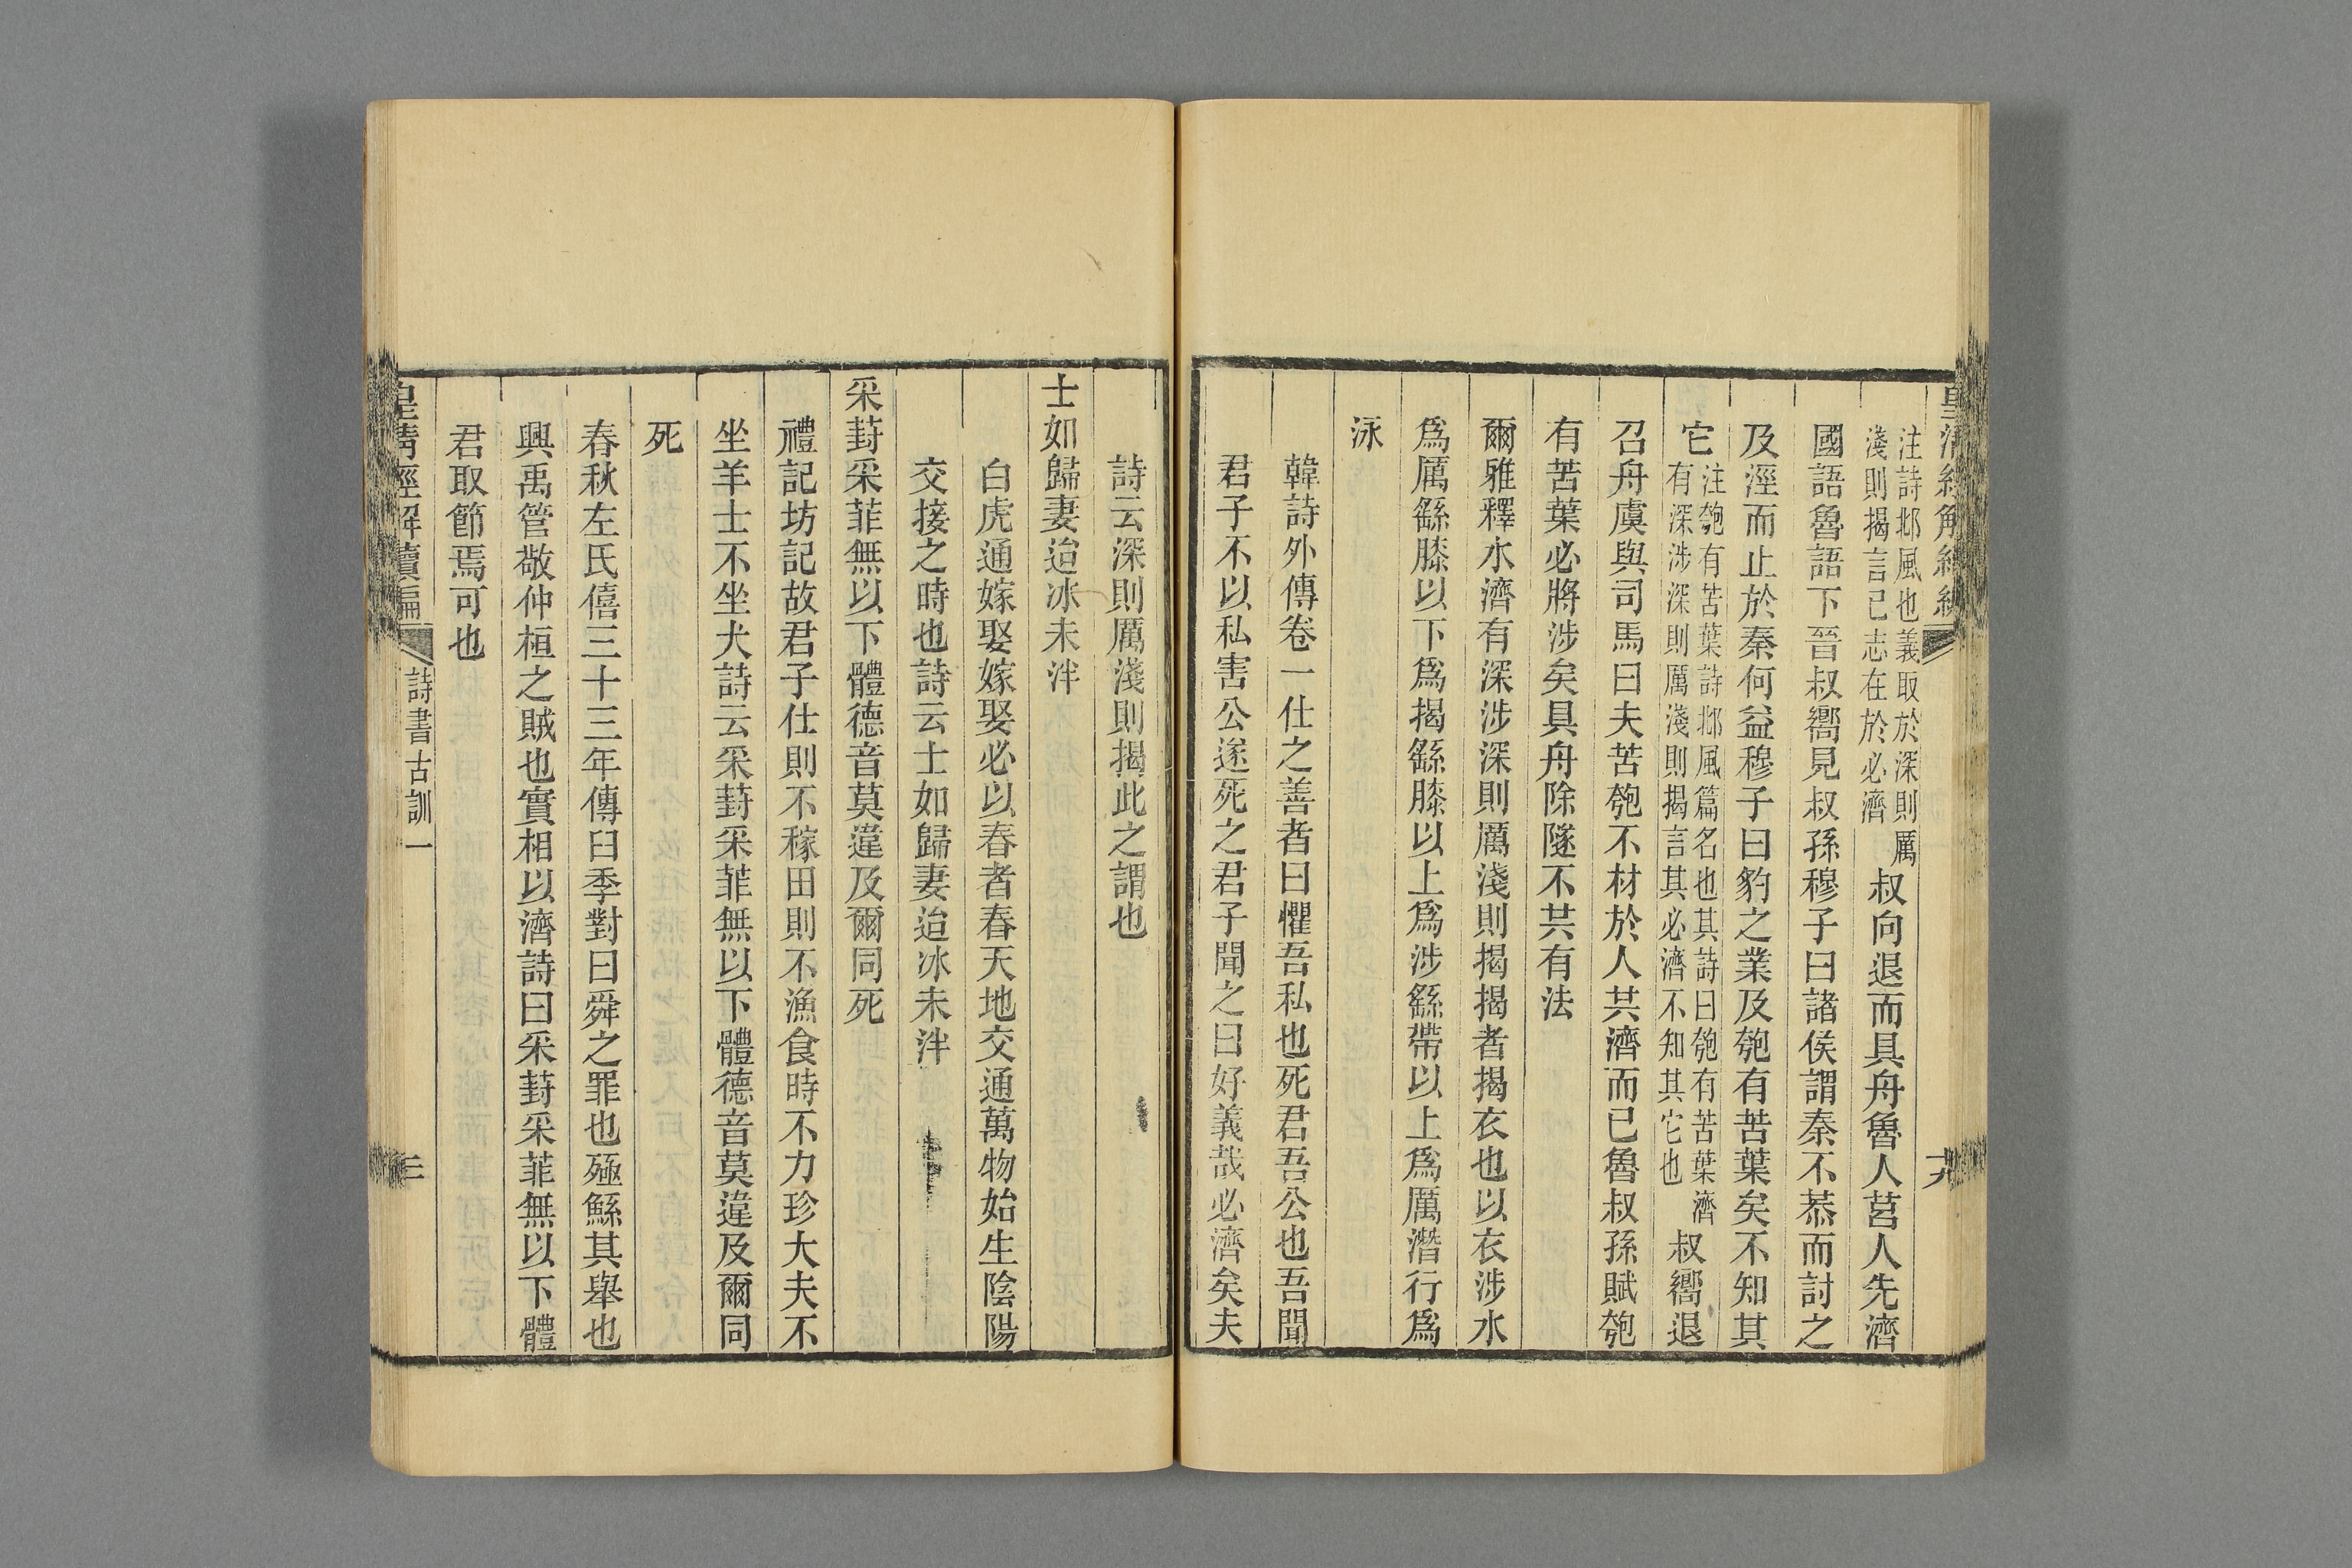 皇清經解續編
十九
注詩邶風也義取於深則厲
淺則揭言己志在於必濟
叔向退而具舟魯人莒人先濟
國語魯語下晉叔嚮見叔孫穆子曰諸侯謂秦不恭而討之
及涇而止於秦何益穆子曰豹之業及匏有苦葉矣不知其
它
注匏有苦葉詩邶風篇名也其詩曰匏有苦葉濟
有深涉深則厲淺則揭言其必濟不知其它也
叔嚮退
召舟虞與司馬曰夫苦匏不材於人共濟而已魯叔孫賦匏
有苦葉必將涉矣具舟除隧不共有法
爾雅釋水濟有深涉深則厲淺則揭揭者揭衣也以衣涉水
爲厲繇膝以下爲揭繇膝以上爲涉繇帶以上爲厲潛行爲
泳
韓詩外傳卷一仕之善者曰懼吾私也死君吾公也吾聞
君子不以私害公遂死之君子聞之曰好義哉必濟矣夫
詩云深則厲淺則揭此之謂也
士如歸妻迨冰未泮
白虎通嫁娶嫁娶必以春者春天地交通萬物始生陰陽
交接之時也詩云士如歸妻迨冰未泮
采葑采菲無以下體德音莫違及爾同死
禮記坊記故君子仕則不稼田則不漁食時不力珍大夫不
坐羊士不坐犬詩云采葑采菲無以下體德音莫違及爾同
死
春秋左氏僖三十三年傳臼季對曰舜之罪也殛鯀其舉也
興禹管敬仲桓之賊也實相以濟詩曰采葑采菲無以下體
君取節焉可也
皇清經解續編
詩書古訓一